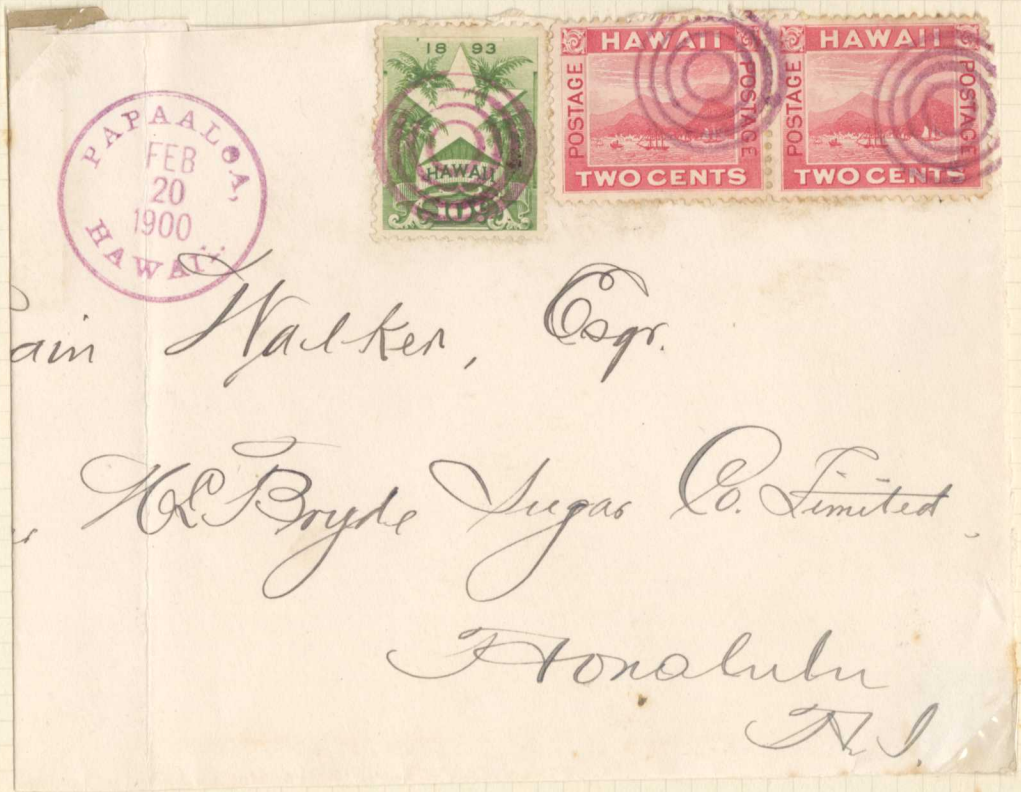 PAPAALOA,
FEB
20
1900
HAWAII.
18 93
HAWAII
10
HAWAII
POSTAGE POSTAGE
TWO CENTS
HAWAII
POSTAGE POSTAGE
TWO CENTS
ain Walker, Esqr.
McBryde Sugar Co. Limited,
Honolulu
H.I.